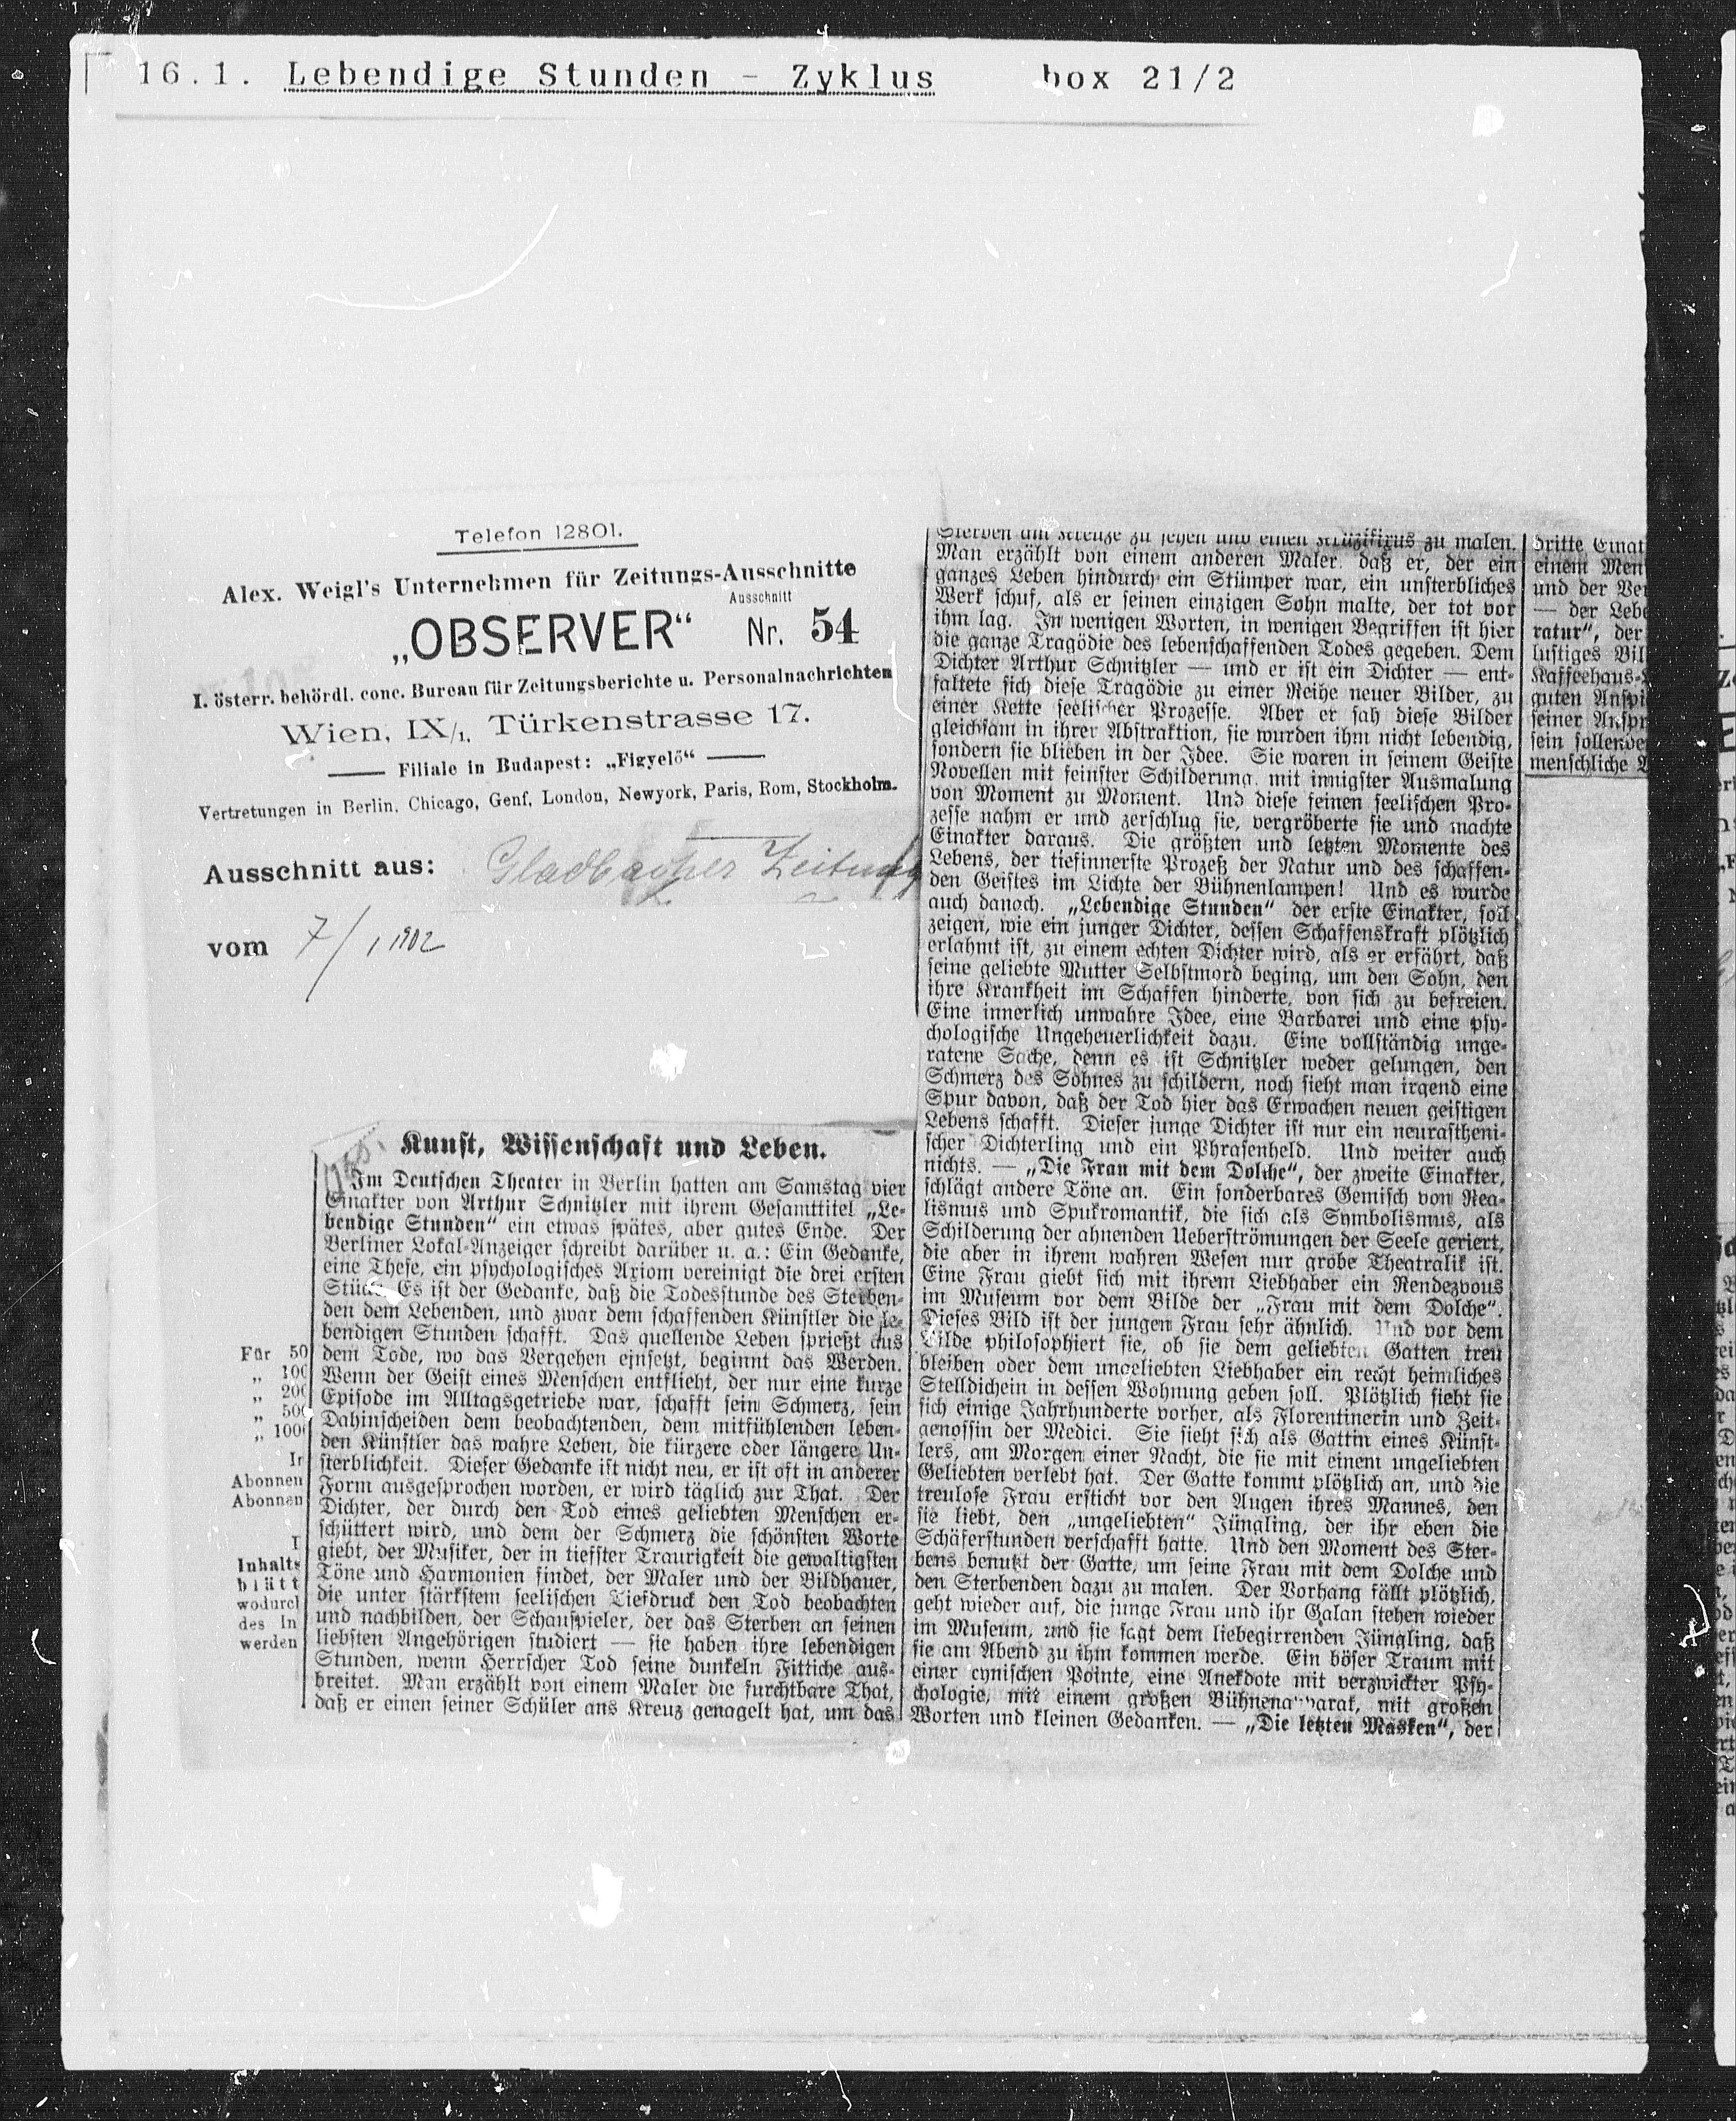 16.1. Lebendige Stunden - Zyklus box 21/2
Telefon 12801.
Alex. Weigl's Unternehmen für Zeitungs-Ausschnitte
Ausschnitt
„OBSERVER“ Nr. 54
I. österr. behördl. conc. Bureau für Zeitungsberichte u. Personalnachrichten
Wien, IX/1, Türkenstrasse 17.
Filiale in Budapest: „Figyelö“
Vertretungen in Berlin, Chicago, Genf, London, Newyork, Paris, Rom, Stockholm.
Ausschnitt aus: Gladbacher Zeitung
vom 7/1 1902
Für 50
„ 100
„ 200
„ 500
„ 1000
In
Abonnen
Abonnen
I
Inhalts
blätt
wodurcl
des In
werden
Kunst, Wissenschaft und Leben.
Im Deutschen Theater in Berlin hatten am Samstag vier
Einakter von Arthur Schnitzler mit ihrem Gesamttitel „Le-
bendige Stunden“ ein etwas spätes, aber gutes Ende. Der
Berliner Lokal-Anzeiger schreibt darüber u. a.: Ein Gedanke,
eine These, ein psychologisches Axiom vereinigt die drei ersten
Stücke. Es ist der Gedanke, daß die Todesstunde des Sterben-
den dem Lebenden, und zwar dem schaffenden Künstler die le-
bendigen Stunden schafft. Das quellende Leben sprießt aus
dem Tode, wo das Vergehen einsetzt, beginnt das Werden.
Wenn der Geist eines Menschen entflieht, der nur eine kurze
Episode im Alltagsgetriebe war, schafft sein Schmerz, sein
Dahinscheiden dem beobachtenden, dem mitfühlenden leben-
den Künstler das wahre Leben, die kürzere oder längere Un-
sterblichkeit. Dieser Gedanke ist nicht neu, er ist oft in anderer
Form ausgesprochen worden, er wird täglich zur That. Der
Dichter, der durch den Tod eines geliebten Menschen er-
schüttert wird, und dem der Schmerz die schönsten Worte
giebt, der Musiker, der in tiefster Traurigkeit die gewaltigsten
Töne und Harmonien findet, der Maler und der Bildhauer,
die unter stärkstem seelischen Tiefdruck den Tod beobachten
und nachbilden, der Schauspieler, der das Sterben an seinen
liebsten Angehörigen studiert — sie haben ihre lebendigen
Stunden, wenn Herrscher Tod seine dunkeln Fittiche aus-
breitet. Man erzählt von einem Maler die furchtbare That,
daß er einen seiner Schüler ans Kreuz genagelt hat, um das
Sterben am Kreuze zu sehen und einen Kruzifixus zu malen.
Man erzählt von einem anderen Maler, daß er, der ein
ganzes Leben hindurch ein Stümper war, ein unsterbliches
Werk schuf, als er seinen einzigen Sohn malte, der tot vor
ihm lag. In wenigen Worten, in wenigen Begriffen ist hier
die ganze Tragödie des lebenschaffenden Todes gegeben. Dem
Dichter Arthur Schnitzler — und er ist ein Dichter — ent-
faltete sich diese Tragödie zu einer Reihe neuer Bilder, zu
einer Kette seelischer Prozesse. Aber er sah diese Bilder
gleichsam in ihrer Abstraktion, sie wurden ihm nicht lebendig,
sondern sie blieben in der Idee. Sie waren in seinem Geiste
Novellen mit feinster Schilderung, mit innigster Ausmalung
von Moment zu Moment. Und diese feinen seelischen Pro-
zesse nahm er und zerschlug sie, vergröberte sie und machte
Einakter daraus. Die größten und letzten Momente des
Lebens, der tiefinnerste Prozeß der Natur und des schaffen-
den Geistes im Lichte der Bühnenlampen! Und es wurde
auch danach. „Lebendige Stunden“ der erste Einakter, soll
zeigen, wie ein junger Dichter, dessen Schaffenskraft plötzlich
erlahmt ist, zu einem echten Dichter wird, als er erfährt, daß
seine geliebte Mutter Selbstmord beging, um den Sohn, den
ihre Krankheit im Schaffen hinderte, von sich zu befreien.
Eine innerlich unwahre Idee, eine Barbarei und eine psy-
chologische Ungeheuerlichkeit dazu. Eine vollständig unge-
ratene Sache, denn es ist Schnitzler weder gelungen, den
Schmerz des Sohnes zu schildern, noch sieht man irgend eine
Spur davon, daß der Tod hier das Erwachen neuen geistigen
Lebens schafft. Dieser junge Dichter ist nur ein neurastheni-
scher Dichterling und ein Phrasenheld. Und weiter auch
nichts. — „Die Frau mit dem Dolche“, der zweite Einakter,
schlägt andere Töne an. Ein sonderbares Gemisch von Rea-
lismus und Spukromantik, die sich als Symbolismus, als
Schilderung der ahnenden Ueberströmungen der Seele geriert,
die aber in ihrem wahren Wesen nur grobe Theatralik ist.
Eine Frau giebt sich mit ihrem Liebhaber ein Rendezvous
im Museum vor dem Bilde der „Frau mit dem Dolche“.
Dieses Bild ist der jungen Frau sehr ähnlich. Und vor dem
Bilde philosophiert sie, ob sie dem geliebten Gatten treu
bleiben oder dem ungeliebten Liebhaber ein recht heimliches
Stelldichein in dessen Wohnung geben soll. Plötzlich sieht sie
sich einige Jahrhunderte vorher, als Florentinerin und Zeit-
genossin der Medici. Sie sieht sich als Gattin eines Künst-
lers, am Morgen einer Nacht, die sie mit einem ungeliebten
Geliebten verlebt hat. Der Gatte kommt plötzlich an, und die
treulose Frau ersticht vor den Augen ihres Mannes, den
sie liebt, den „ungeliebten“ Jüngling, der ihr eben die
Schäferstunden verschafft hatte. Und den Moment des Ster-
bens benutzt der Gatte, um seine Frau mit dem Dolche und
den Sterbenden dazu zu malen. Der Vorhang fällt plötzlich,
geht wieder auf, die junge Frau und ihr Galan stehen wieder
im Museum, und sie sagt dem liebegirrenden Jüngling, daß
sie am Abend zu ihm kommen werde. Ein böser Traum mit
einer cynischen Pointe, eine Anekdote mit verzwickter Psy-
chologie, mit einem großen Bühnenapparat, mit großen
Worten und kleinen Gedanken. — „Die letzten Masken“, der
dritte Einak
einem Men
und der Ver
— der Lebe
ratur“, der
lustiges Bil
Kaffeehaus-
guten Anspi
seiner Anspr
sein sollende
menschliche